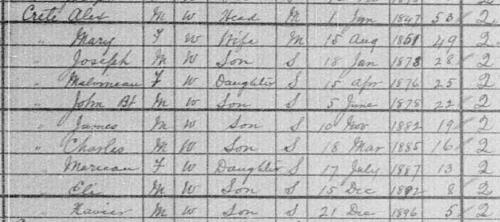 Crete Alex M W Head M 1 Jan 1847 53 2
" Mary F W Wife M 15 Aug 1851 49 2
" Joseph M W Son S 18 Jan 1873 28 2
" F W Daughter S 15 Apr 1876 25 2
" John Bt M W Son S 5 June 1878 22 2
" James M W Son S 10 Nov 1882 19 2
" Charles M W Son S 18 Mar 1885 16 2
" F W Daughter S 17 July 1887 13 2
" Eli M W Son S 15 Dec 1892 8 2
" Xavier M W Son S 21 Dec 1896 5 2